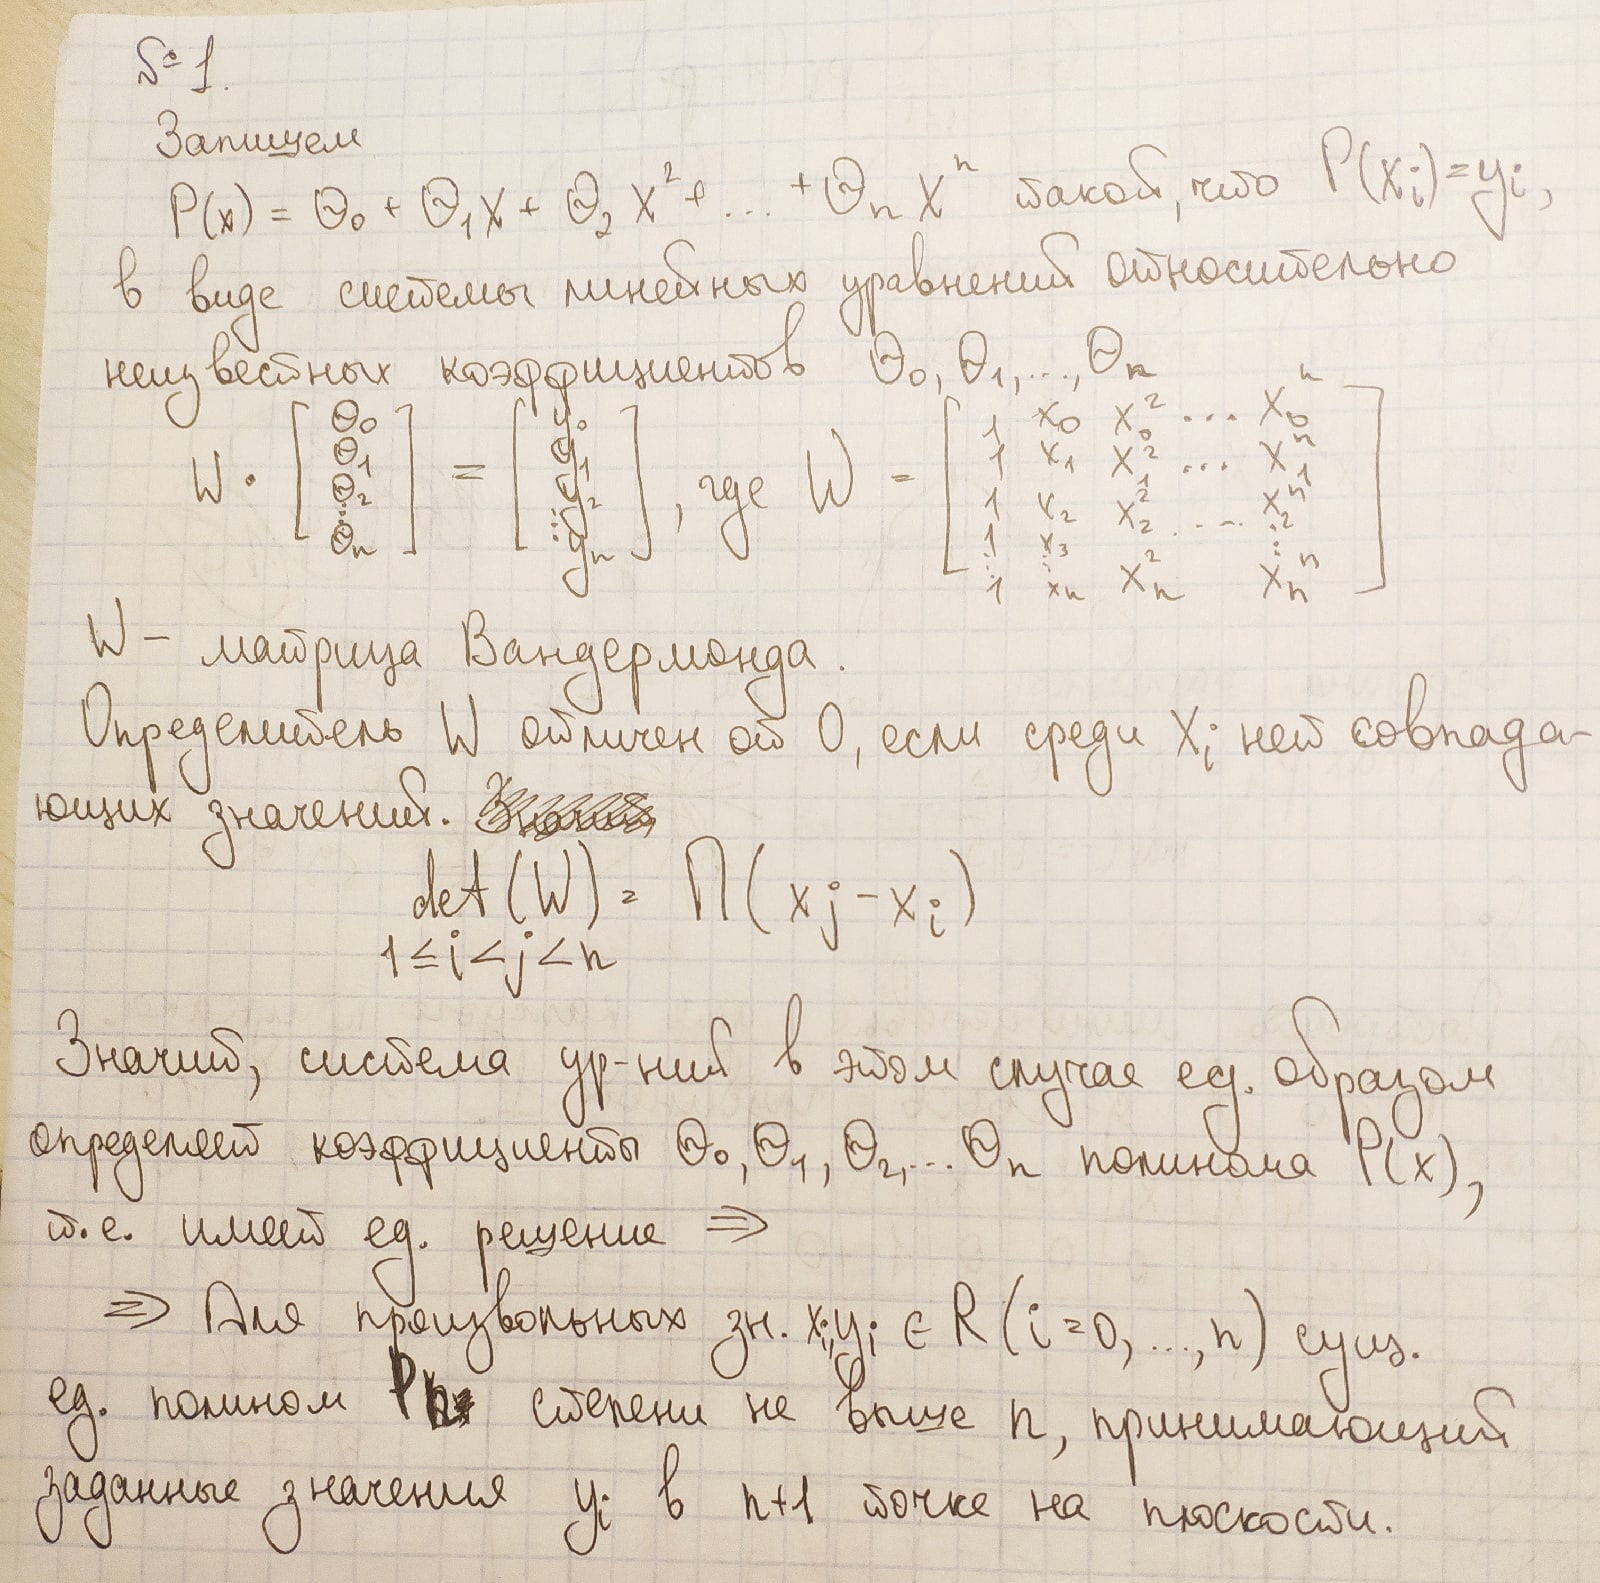 № 1.
Запишем
P(x) = Θ₀ + Θ₁x + Θ₂x² + ... + Θₙxⁿ такой, что P(xᵢ)=yᵢ,
в виде системы линейных уравнений относительно
неизвестных коэффициентов Θ₀, Θ₁, ..., Θₙ
W · [Θ₀ Θ₁ Θ₂ ⋮ Θₙ] = [y₀ y₁ y₂ ⋮ yₙ], где W = [1 x₀ x₀² ... x₀ⁿ
1 x₁ x₁² ... x₁ⁿ
1 x₂ x₂² ... x₂ⁿ
1 x₃ ⋮
1 xₙ xₙ² xₙⁿ]
W – матрица Вандермонда.
Определитель W отличен от 0, если среди xᵢ нет совпада-
ющих значений.
det(W) = Π(xⱼ - xᵢ)
1 ≤ i < j < n
Значит, система ур-ний в этом случае ед. образом
определяет коэффициенты Θ₀, Θ₁, Θ₂, ... Θₙ полинома P(x),
т.е. имеет ед. решение ⇒
⇒ Для произвольных зн. xᵢ, yᵢ ∈ R (i=0, ..., n) сущ.
ед. полином Pₙ степени не выше n, принимающий
заданные значения yᵢ в n+1 точке на плоскости.